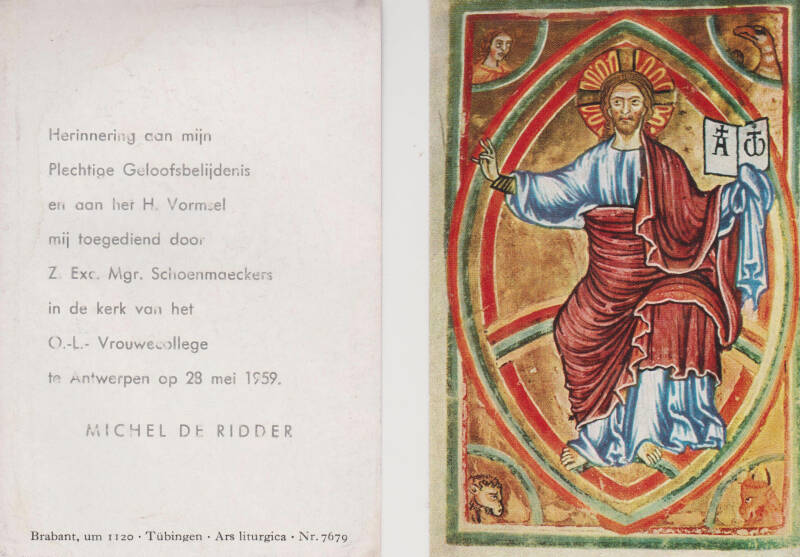 Herinnering aan mijn
Plechtige Geloofsbelijdenis
en aan het H. Vormsel
mij toegediend door
Z. Exc. Mgr. Schoenmaeckers
in de kerk van het
O.-L.- Vrouwecollege
te Antwerpen op 28 mei 1959.
MICHEL DE RIDDER
Brabant, um 1120 · Tübingen · Ars liturgica · Nr. 7679
A ω